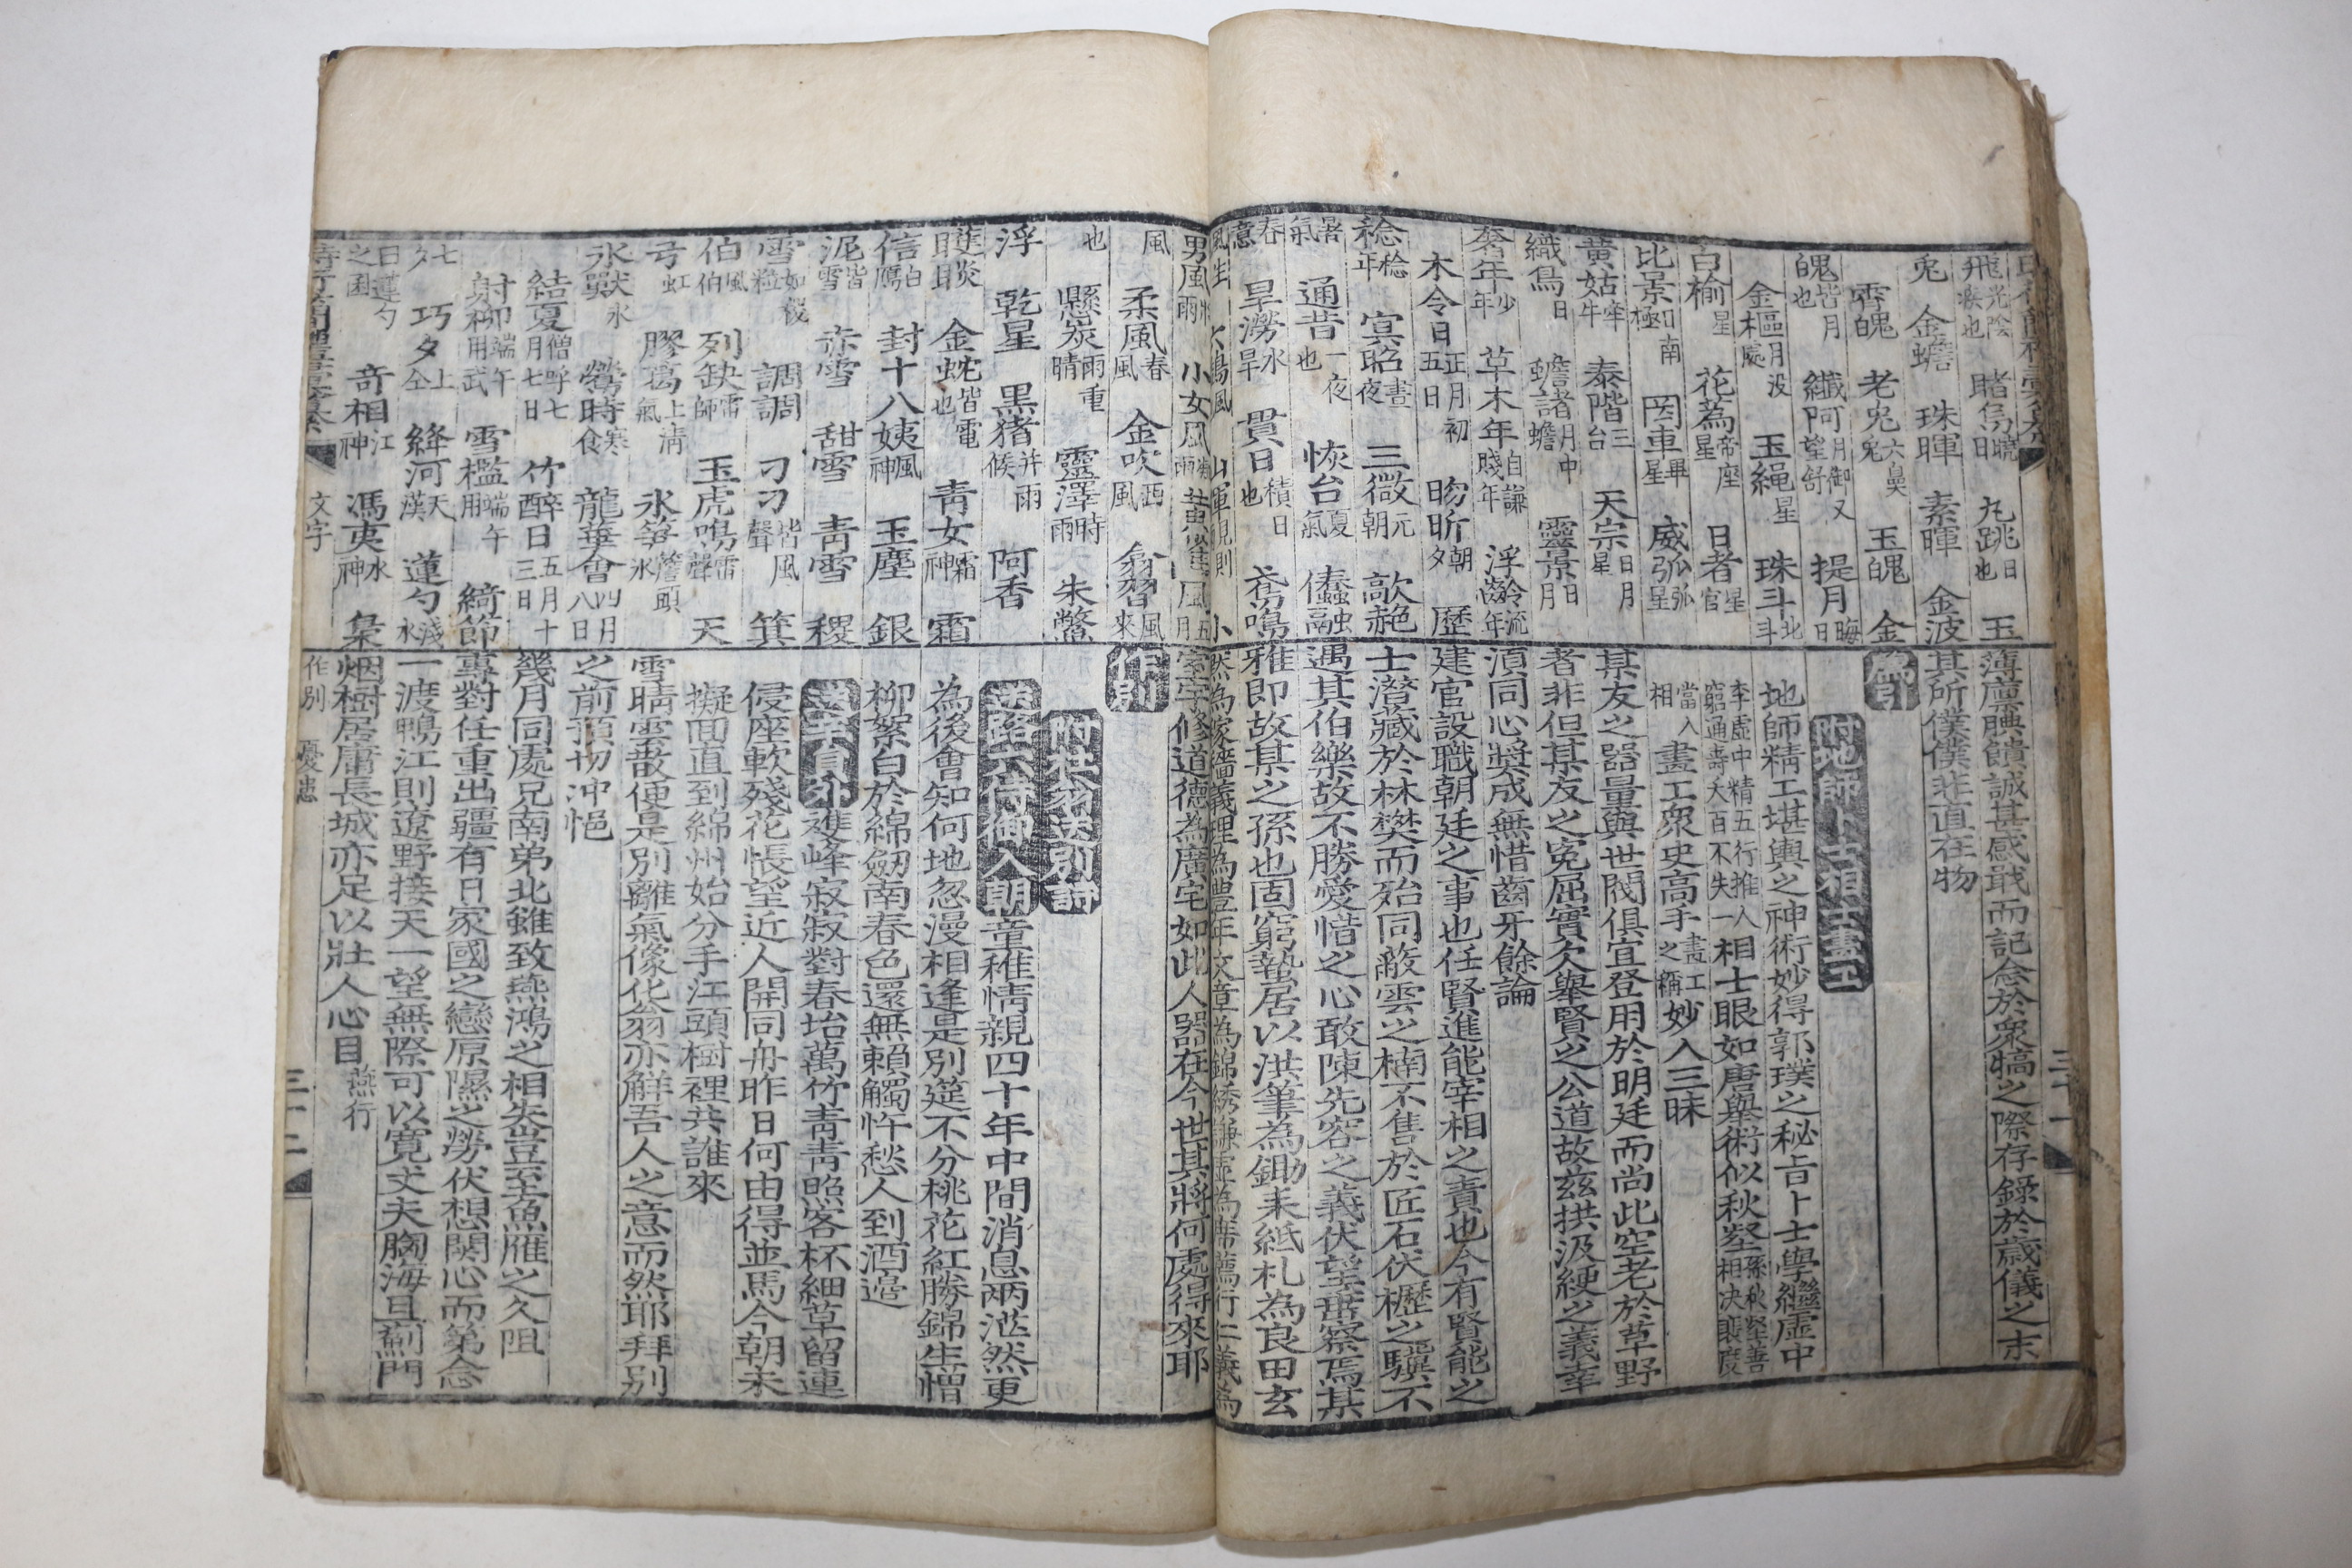 飛光陰疾也 賭烏曉日 丸跳日也 玉
兎 金蟾 珠暉 素暉 金波
霄魄 老兎 玉魄 金
魄皆月也 纖阿月御又望舒 提月晦日
金樞月没處 玉繩星 珠斗北斗
白榆星 花葢帝座星 日者星官
比景日南極 罔車畢星 威弧弧星
黃姑牽牛 泰階三台 天宗日月星
織烏日 蟾諸月中蟾 靈景日月
奢年少年 草木年自謙賤年 浮齡流年
木令日正月初五日 昒昕朝夕 歷
稔稔年 冥昭晝夜 三微元朝 歊赩
暑氣 通昔一夜也 恢台夏氣 爞融
春意 旱澇水旱 貫日積日也 鳶鳴
薄廩腆饋誠甚感戢而記念於衆犒之際存錄於歲儀之末
其所僕僕非直在物
薦引
附地師卜士相士畫工
地師精工堪輿之神術妙得郭璞之秘旨卜士學繼虛中
李虛中精五行推人窮通壽夭百不失一相士眼如唐舉術似秋壑孫秋壑善相决裴度
當入相畫工衆史高手畫工之稱妙入三昧
某友之器量與世閥俱宜登用於明廷而尚此空老於草野
者非但某友之寃屈實欠舉賢之公道故茲拱汲綆之義幸
湏同心奬成無惜齒牙餘論
建官設職朝廷之事也任賢進能宰相之責也今有賢能之
士潛藏於林樊而殆同蔽雲之楠不售於匠石伏櫪之驥不
遇其伯樂故不勝愛惜之心敢陳先容之義伏望垂察焉某
雅即故某之孫也固窮蟄居以洪筆為鋤耒紙札為良田玄
默為家嗇義理為豊年文章為錦綉謙虛為席薦行仁義為
男風雨 小女風雨 黃雀風五月 小
風 柔風春風 金吹西風 翕習風來
也 懸炭雨重晴 靈澤時雨 朱鱉
浮 乾星 黑猪并雨候 阿香
䨓睒 金蛇皆電也 青女霜神 霜
信白鴈 封十八姨風神 玉塵 銀
泥皆雪 赤雪 甜雪 青雪 稷
雪如稷粒 調調 刁刁皆風聲 箕
伯風伯 列缺雷師 玉虎鳴雷聲 天
弓虹 膠葛上清氣 氷筝簷頭氷
氷獸氷 鶯時寒食 龍華會四月八日
結夏僧呼七月七日 竹醉日五月十三日
射柳端午用武 雪檻端午用 綺節
七夕 巧夕上仝 絳河天漢 蓮勺淺水
曰蓮勺之 奇相江神 馮夷水神 梟
室宇修道德為廣宅如此人器在今世其將何處得來耶
作別
附朱 送別詩
送路六侍御入朝童稚情親四十年中間消息兩茫然更
為後會知何地忽漫相逢是別筵不分桃花紅勝錦生憎
柳絮白於綿劒南春色還無賴觸忤愁人到酒邊
送辛員外雙峰寂寂對春坮萬竹青青照客杯細草留連
侵座軟殘花悵望近人開同舟昨日何由得並馬今朝未
擬面直到綿州始分手江頭樹裡共誰來
雪晴雲散便是別離氣像化翁亦解吾人之意而然耶拜別
之前預切冲悒
幾月同處兄南弟北雖致燕鴻之相失豈至魚雁之久阻
專對任重出疆有日家國之戀原隰之勞伏想関心而第念
一渡鴨江則遼野接天一望無際可以寛丈夫胸海且薊門
烟樹居庸長城亦足以壯人心目燕行
文字
作別 憂患
三十二